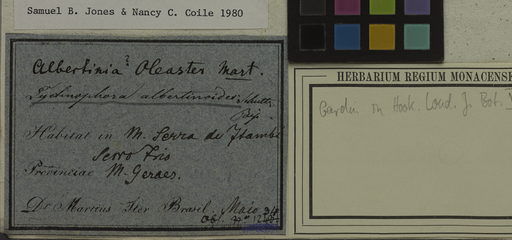 Samuel B. Jones & Nancy C. Coile 1980
Albertinia? Oleaster Mart.
Lychnophora albertinioides
Habitat in M. Serra de Itambé
Serro Frio
Provinciae M. Geraes.
Dr Martius Iter Brasil. Maio
HERBARIUM REGIUM MONACENS
in Hook. Lond. J. Bot.